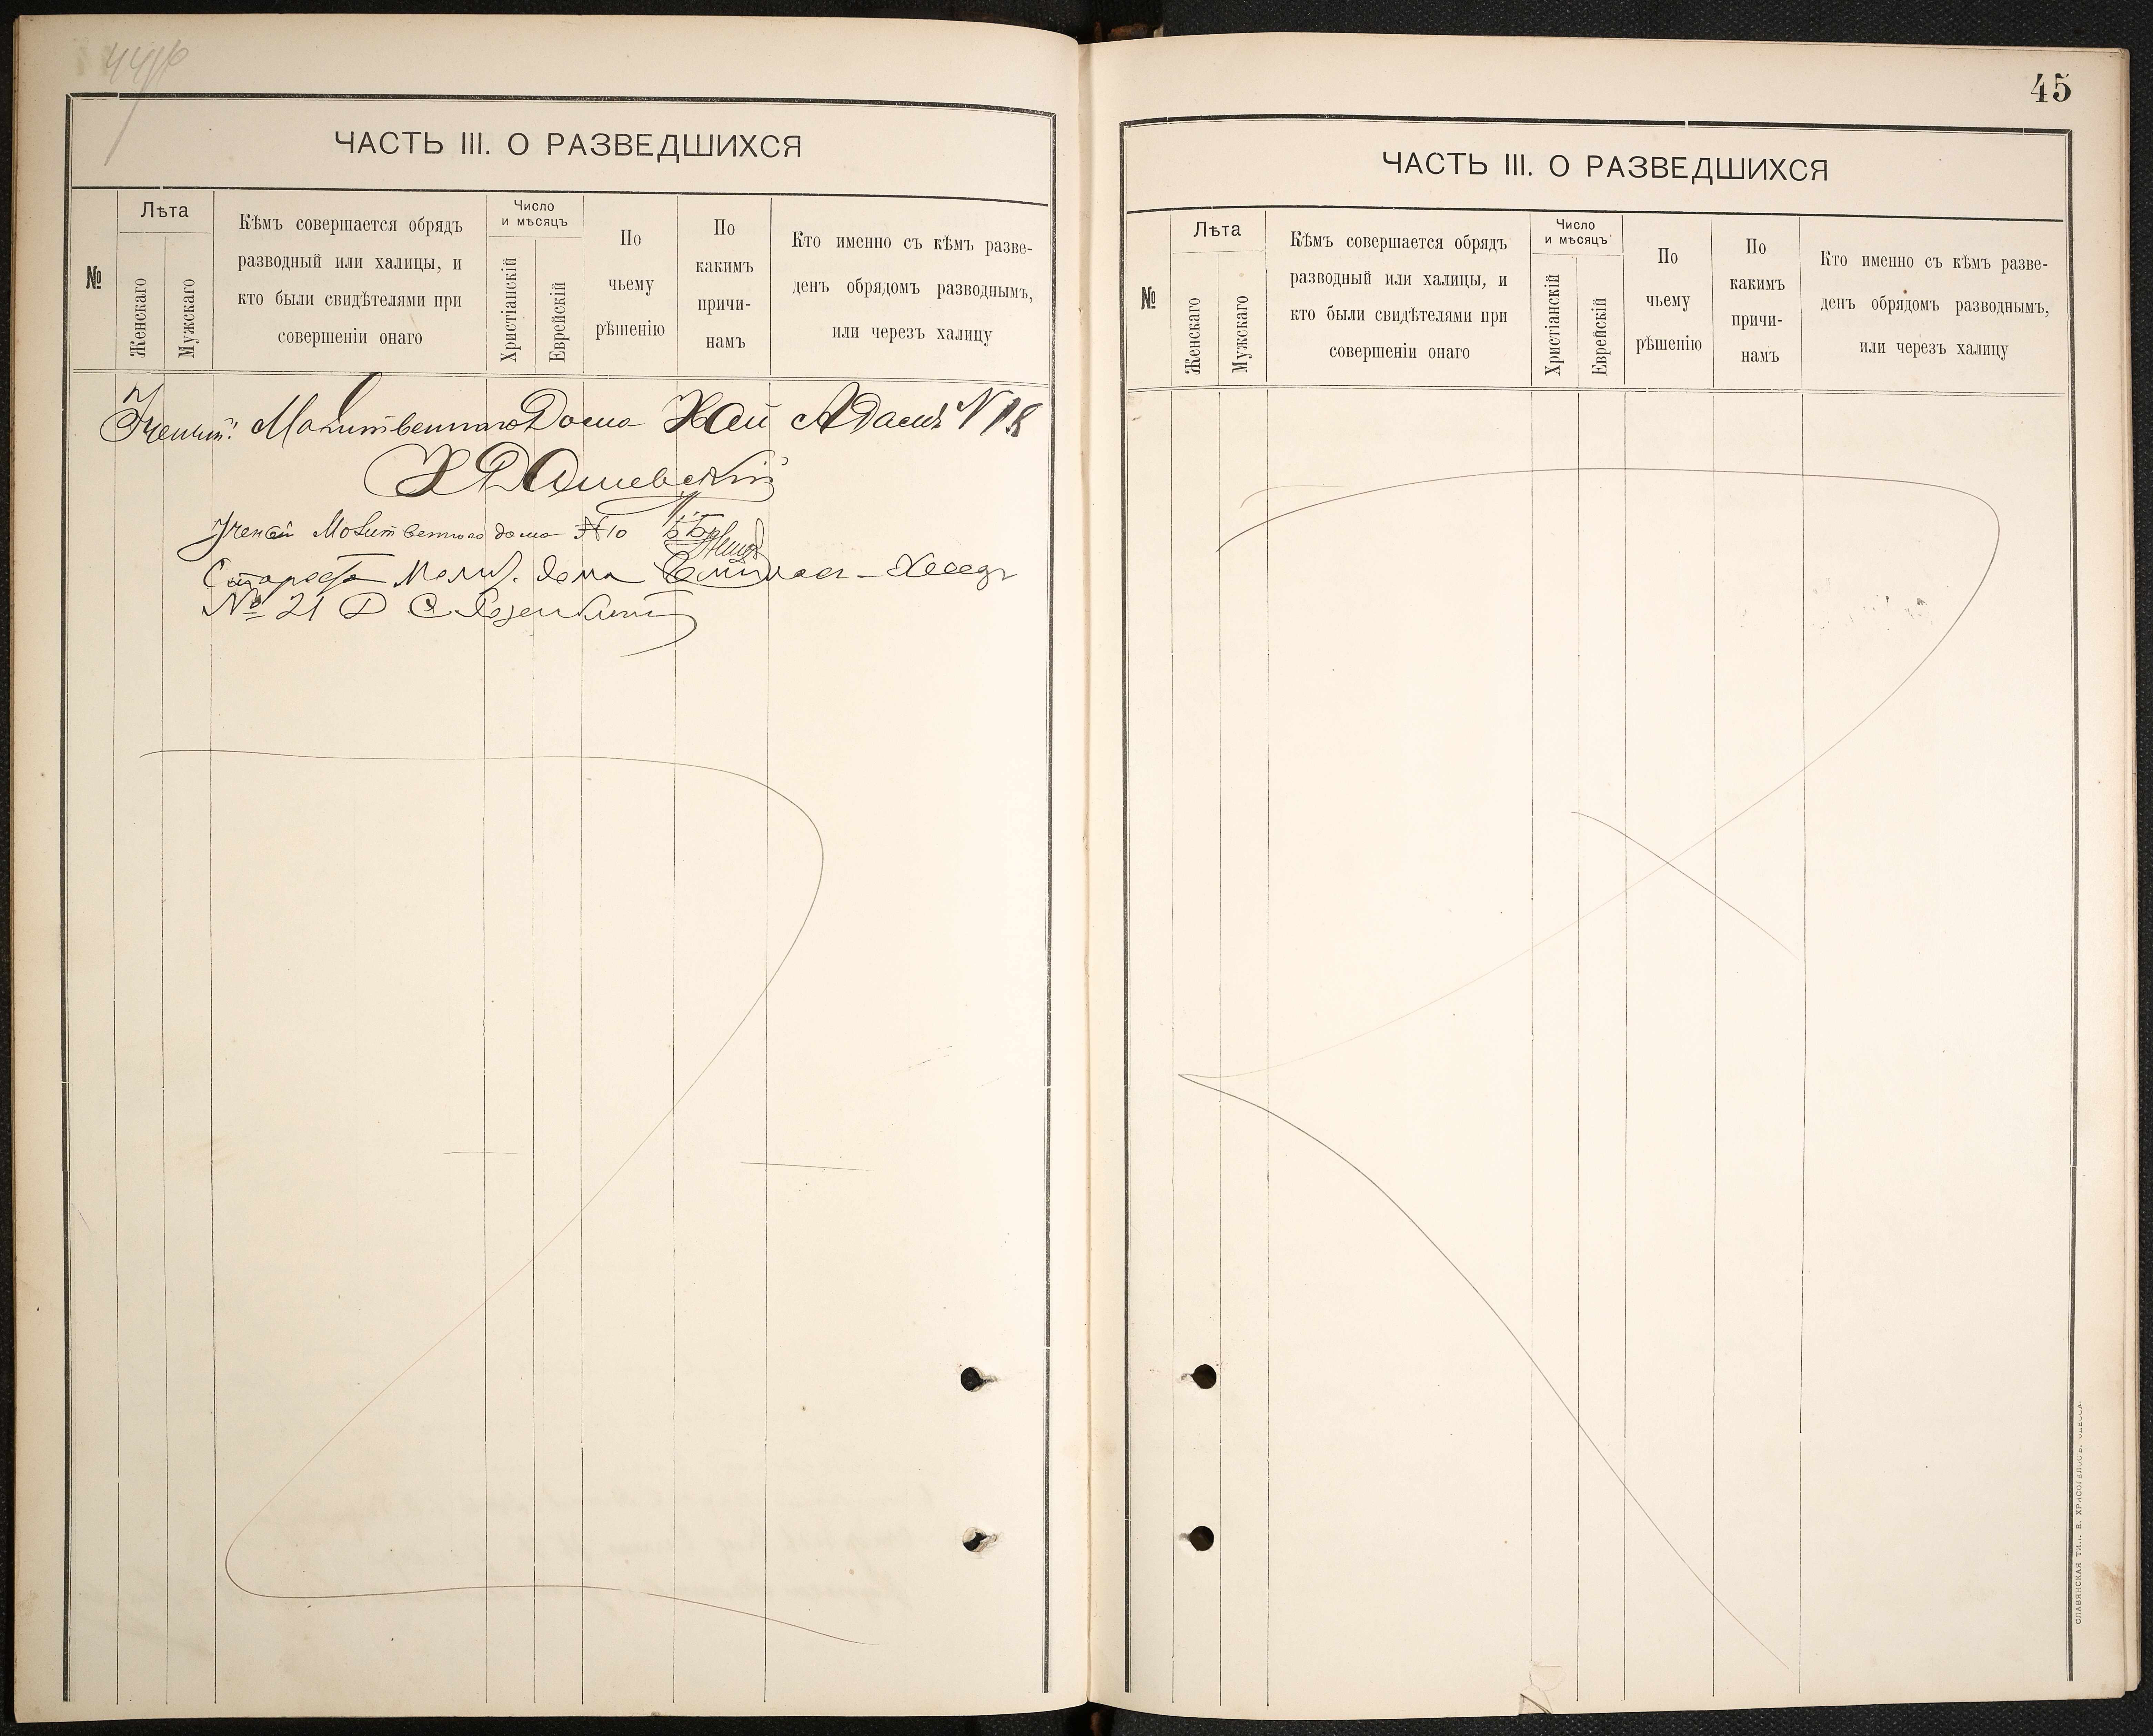 ЧАСТЬ III. О РАЗВЕДШИХСЯ
№
Лѣта
Женскаго
Мужскаго
Кѣмъ совершается обрядъ
разводный или халицы, и
кто были свидѣтелями при
совершеніи онаго
Число
и мѣсяцъ
Христіанскій
Еврейскій
По
чьему
рѣшенію
По
какимъ
причи-
намъ
Кто именно съ кѣмъ разве-
денъ обрядомъ разводнымъ,
или черезъ халицу
Ученый Молитвеннаго Дома Хай Адамъ N 18
Ученый Молитвеннаго дома № 10
Староста Молит. дома Хеседъ
№ 21 Д
45
ЧАСТЬ III. О РАЗВЕДШИХСЯ
№
Лѣта
Женскаго
Мужскаго
Кѣмъ совершается обрядъ
разводный или халицы, и
кто были свидѣтелями при
совершеніи онаго
Число
и мѣсяцъ
Христіанскій
Еврейскій
По
чьему
рѣшенію
По
какимъ
причи-
намъ
Кто именно съ кѣмъ разве-
денъ обрядомъ разводнымъ,
или черезъ халицу
СЛАВЯНСКАЯ ТИП. Е. ХРИСОГЕЛОСЪ, ОДЕССА